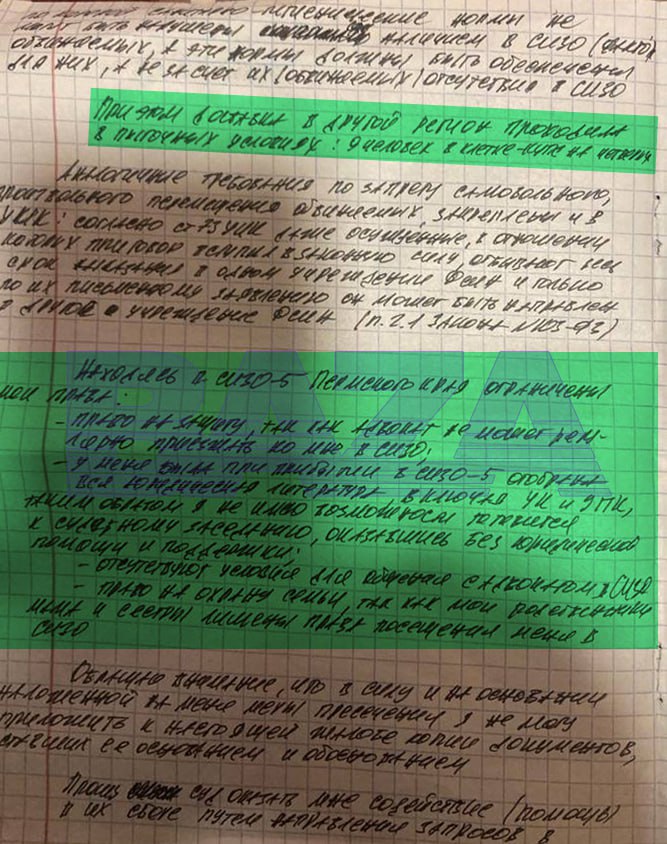 гигиенические нормы не
быть нарушены наличием в СИЗО
обвиняемых, а эти нормы должны быть обеспечены
для них, а не за счет их (обвиняемых) отсутствия в СИЗО
При этом доставка в другой регион проходила
в пыточных условиях: 9 человек в клетке-купе на
Аналогичные требования по запрету самовольного,
произвольного перемещения обвиняемых, закреплены и в
УИК: согласно ст 73 УИК даже осужденные, в отношении
которых приговор вступил в законную силу, отбывают весь
срок наказания в одном учреждении ФСИН и только
по их письменному заявлению он может быть направлен
в другое учреждение ФСИН (п. 2.1 Закона N103-ФЗ)
BAZA
Находясь в СИЗО-5 Пермского края ограничены
мои права:
- право на защиту, так как адвокат не может регу-
лярно приезжать ко мне в СИЗО;
- у меня была при прибытии в СИЗО-5 отобрана
вся юридическая литература, включая УК и УПК,
таким образом я не имею возможности готовится
к судебному заседанию, оказавшись без юридической
помощи и поддержки;
- отсутствуют условия для общения с адвокатом в СИЗО
- право на охрану семьи, так как мои родственники
мама и сестры лишены права посещения меня в
СИЗО
Обращаю внимание, что в силу и на основании
наложенной на меня меры пресечения я не могу
приложить к настоящей жалобе копии документов,
ставших ее основанием и обоснованием
Прошу суд оказать мне содействие (помощь)
в их сборе путем направления запросов в